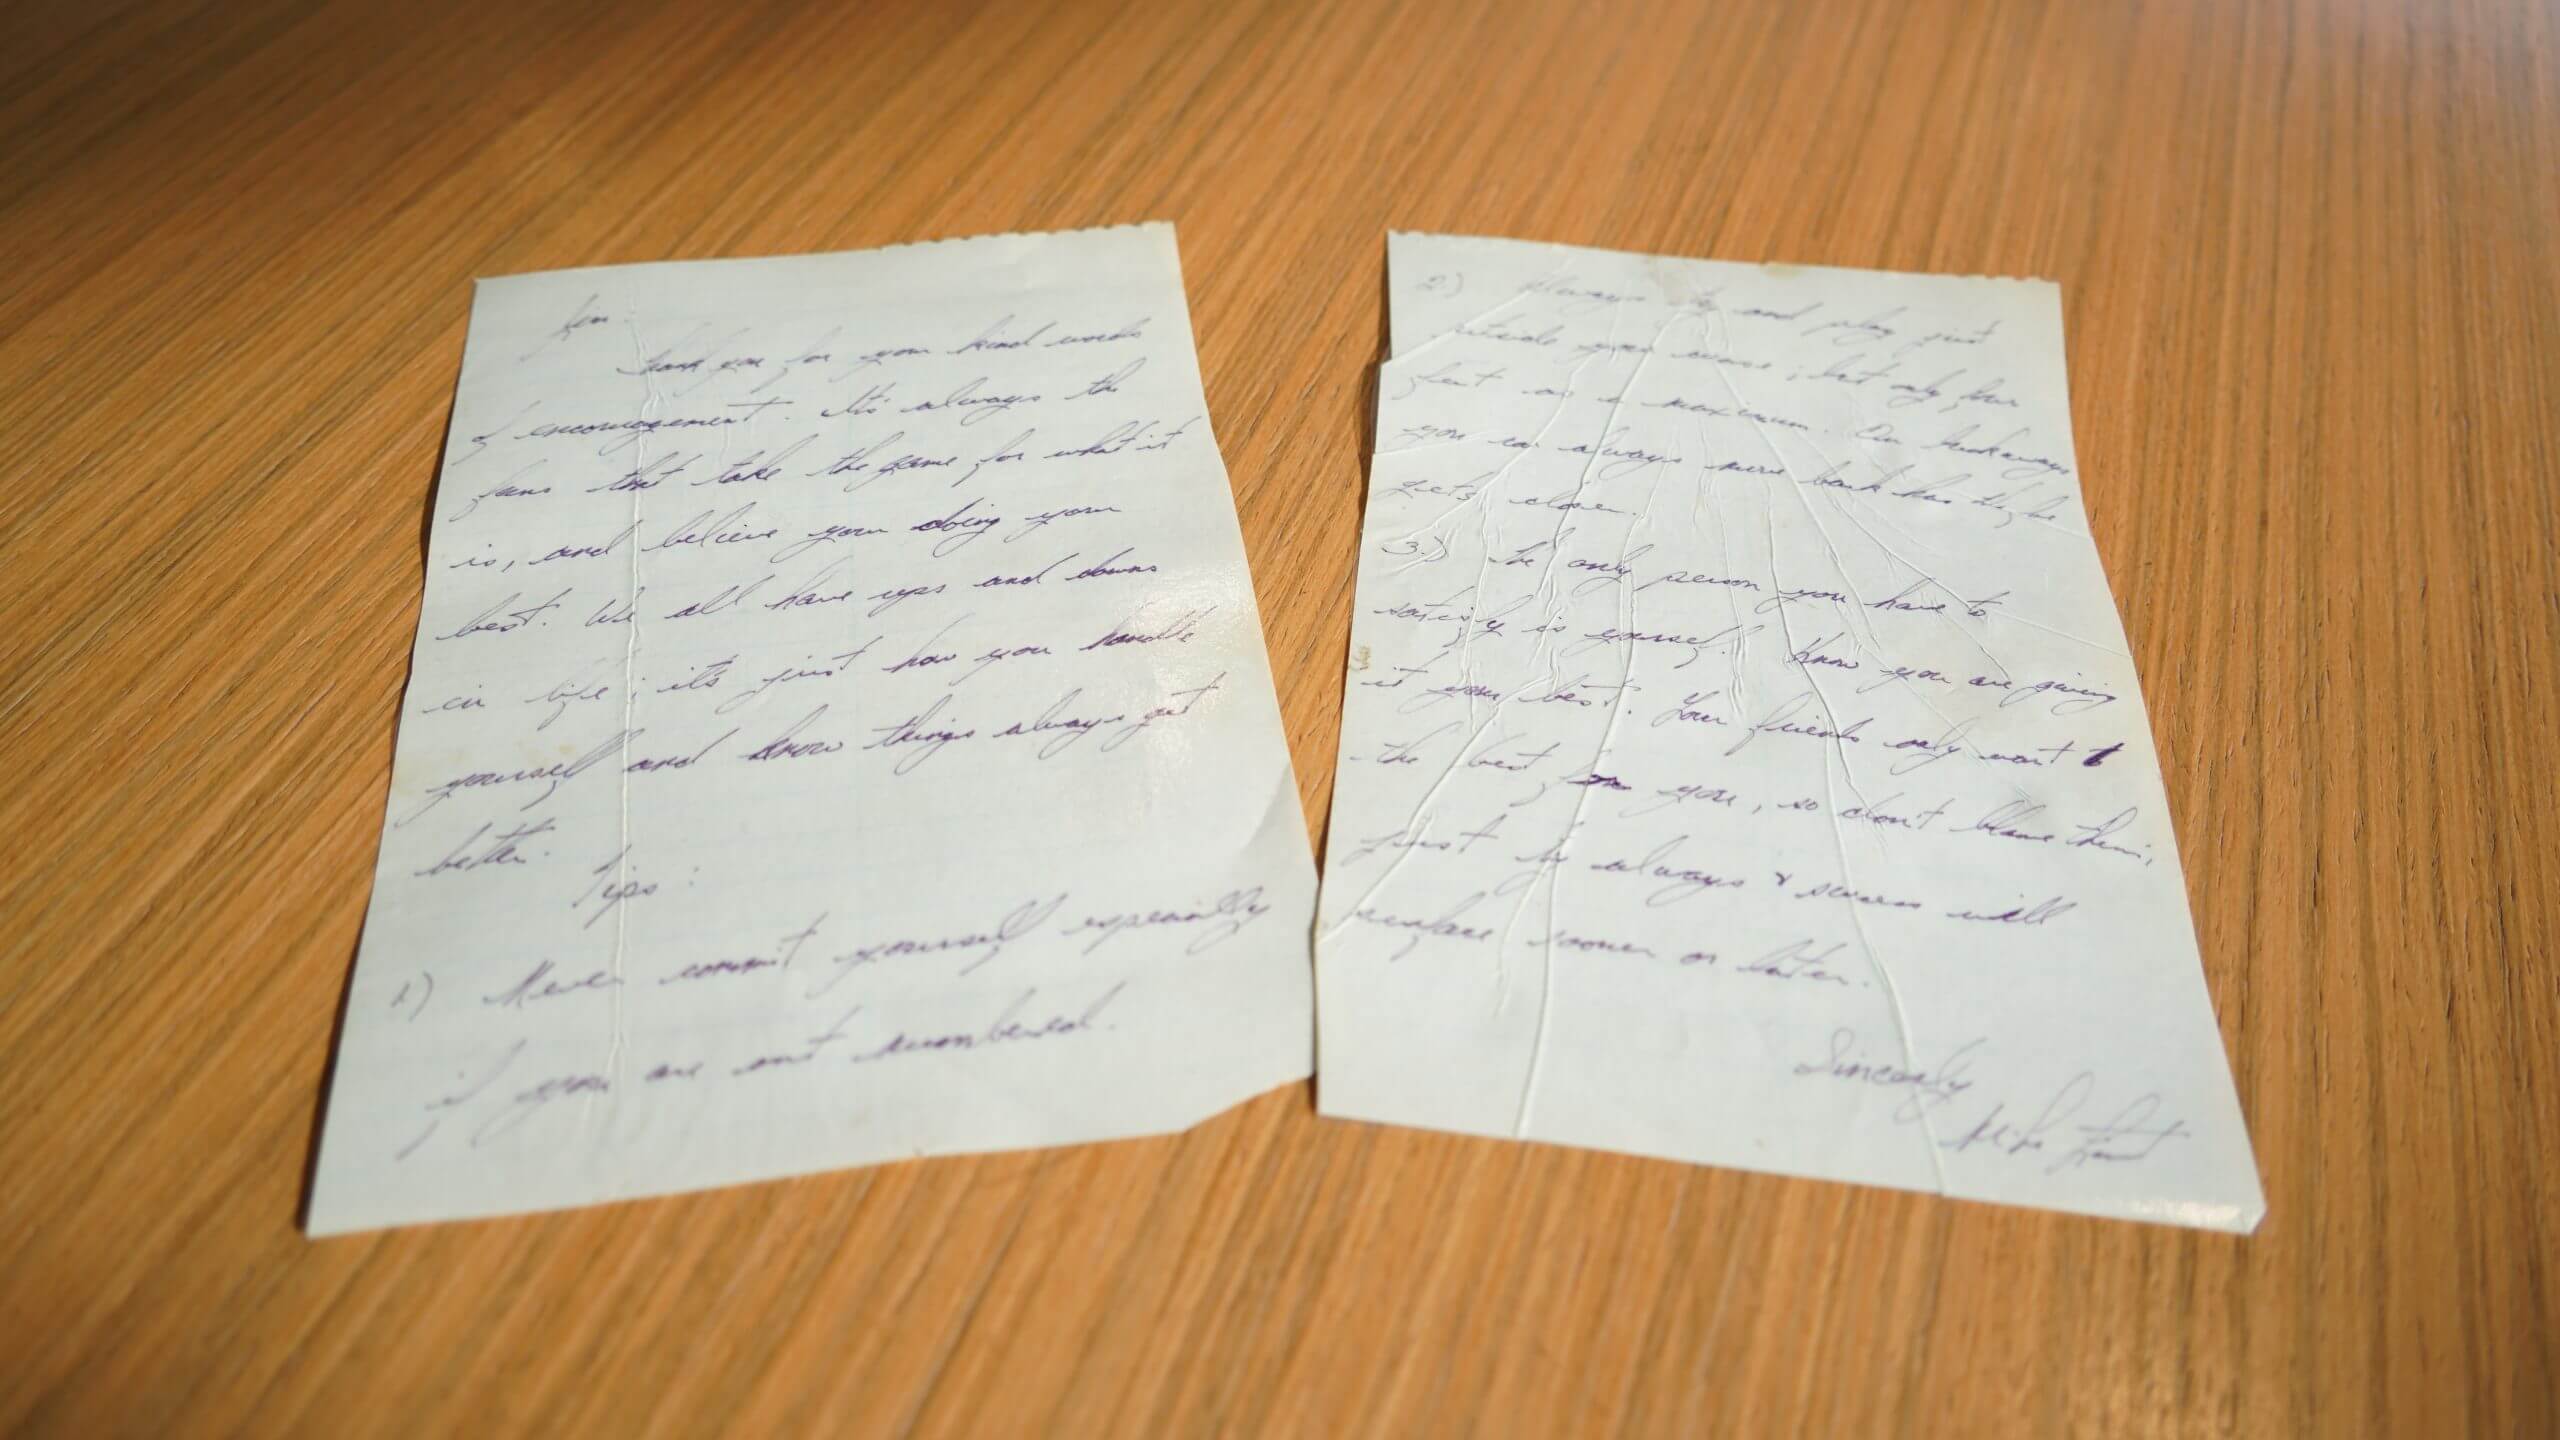 Jim
Thank you for your kind words
of encouragement. It's always the
fans that take the game for what it
is, and believe your doing your
best. We all have ups and downs
in life; it's just how you handle
yourself and know things always get
better.
Tips:
1) Never commit yourself especially
if you are out numbered.
2.) Always try and play just
outside your crease; but only four
feet as a maximum. On breakaways
you can always move back
gets closer.
3.) The only person you have to
satisfy is yourself! Know you are giving
it your best. Your friends only want
the best from you, so don't blame them,
just try always & success will
surface sooner or later.
Sincerly
Mike